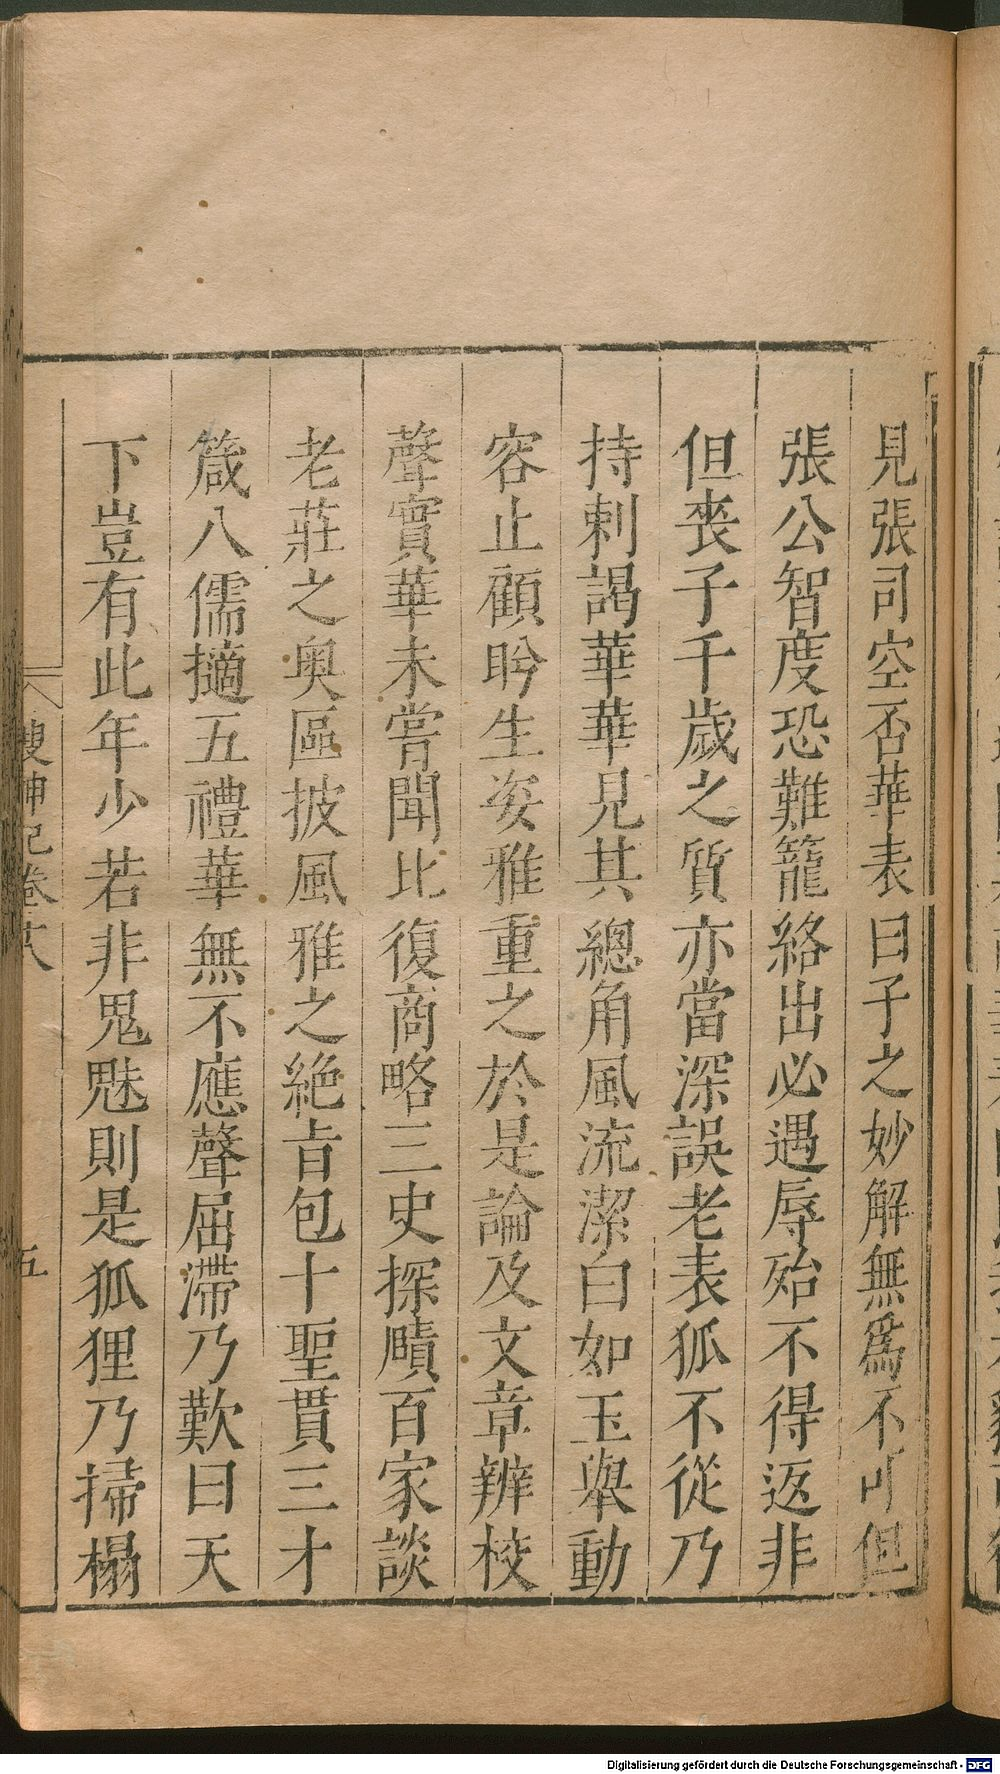 見張司空否華表曰子之妙解無爲不可但
張公智度恐難籠絡出必遇辱殆不得返非
但喪子千歲之質亦當深誤老表狐不從乃
持刺謁華華見其總角風流潔白如玉舉動
容止顧盻生姿雅重之於是論及文章辨校
聲實華未嘗聞比復商略三史探賾百家談
老莊之奧區披風雅之絕旨包十聖貫三才
箴八儒擿五禮華無不應聲屈滯乃歎曰天
下豈有此年少若非鬼魅則是狐狸乃掃榻
搜神記卷十八
五
Digitalisierung gefördert durch die Deutsche Forschungsgemeinschaft - DFG